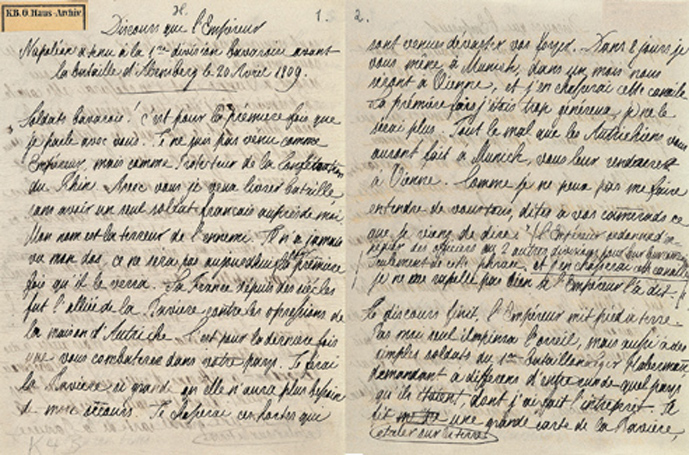 K.B.G. Haus-Archiv
1.
Discours que l'Empereur
Napoléon a tenu à la 1ère division Bavaroise avant
la bataille d'Abensberg le 20 Avril 1809.
Soldats bavarois! c'est pour la première fois que
je parle avec vous. Je ne suis pas venu comme
Empereur, mais comme Protecteur de la Confédération
du Rhin. Avec vous je veux livrer bataille,
sans avoir un seul soldat français auprès de moi
Mon nom est la terreur de l'ennemi. Il n'a jamais
vu mon dos, ce ne sera pas aujourd'hui la première
fois qu'il le verra. La France depuis des siècles
fut l'alliée de la Bavière contre les oppressions de
la maison d'Autriche. C'est pour la dernière fois
que vous combatterez dans votre pays. Je ferai
la Bavière si grande qu'elle n'aura plus besoin
de mon secours. Je chasserai ces hordes qui
2.
sont venues dévaster vos foyers. Dans 2 jours je
vous mène à Munich, dans un mois nous
serons à Vienne, et j'en chasserai cette canaille
La première fois j'étais trop généreux, je ne le
serai plus. Tout le mal que les Autrichiens vous
auront fait à Munich, vous leur rendrez
à Vienne. Comme je ne peux pas me faire
entendre de vous tous, dites à vos camarades ce
que je viens de dire (l'Empereur
des officiers au 2 autres divisions pour
de cette phrase, et j'en chasserai cette canaille
je ne me rappelle pas bien si l'Empereur l'a dit.)
Le discours finit, l'Empereur mit pied à terre.
Pas moi seul l'oreil, mais aussi à des
simples soldats du 1er Bataillon Leger Habermann
demandant à differens d'entre eux de quel pays
qu'ils étaient dont j'ai fait l'interprèt. Je
dis une grande carte de la Bavière,
étaler sur la terre